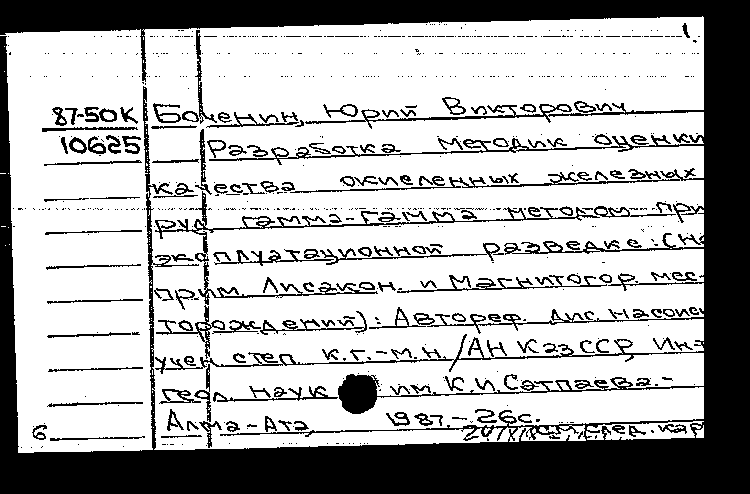 1.
87-50К Боченин, Юрий Викторович
10625 Разработка методик оценки
качества окисленных железных
руд гамма-гамма методом при
эксплуатационной разведке: (На
прим. Лисакон. и Магнитогор. мес-
торождений): Автореф. дис. на соиск
учен. степ. к.г.-м.н. /АН КазССР, Ин-т
геол. наук им. К.И. Сатпаева.-
Алма-Ата, 1987.- 26с.
6 см. след. кар